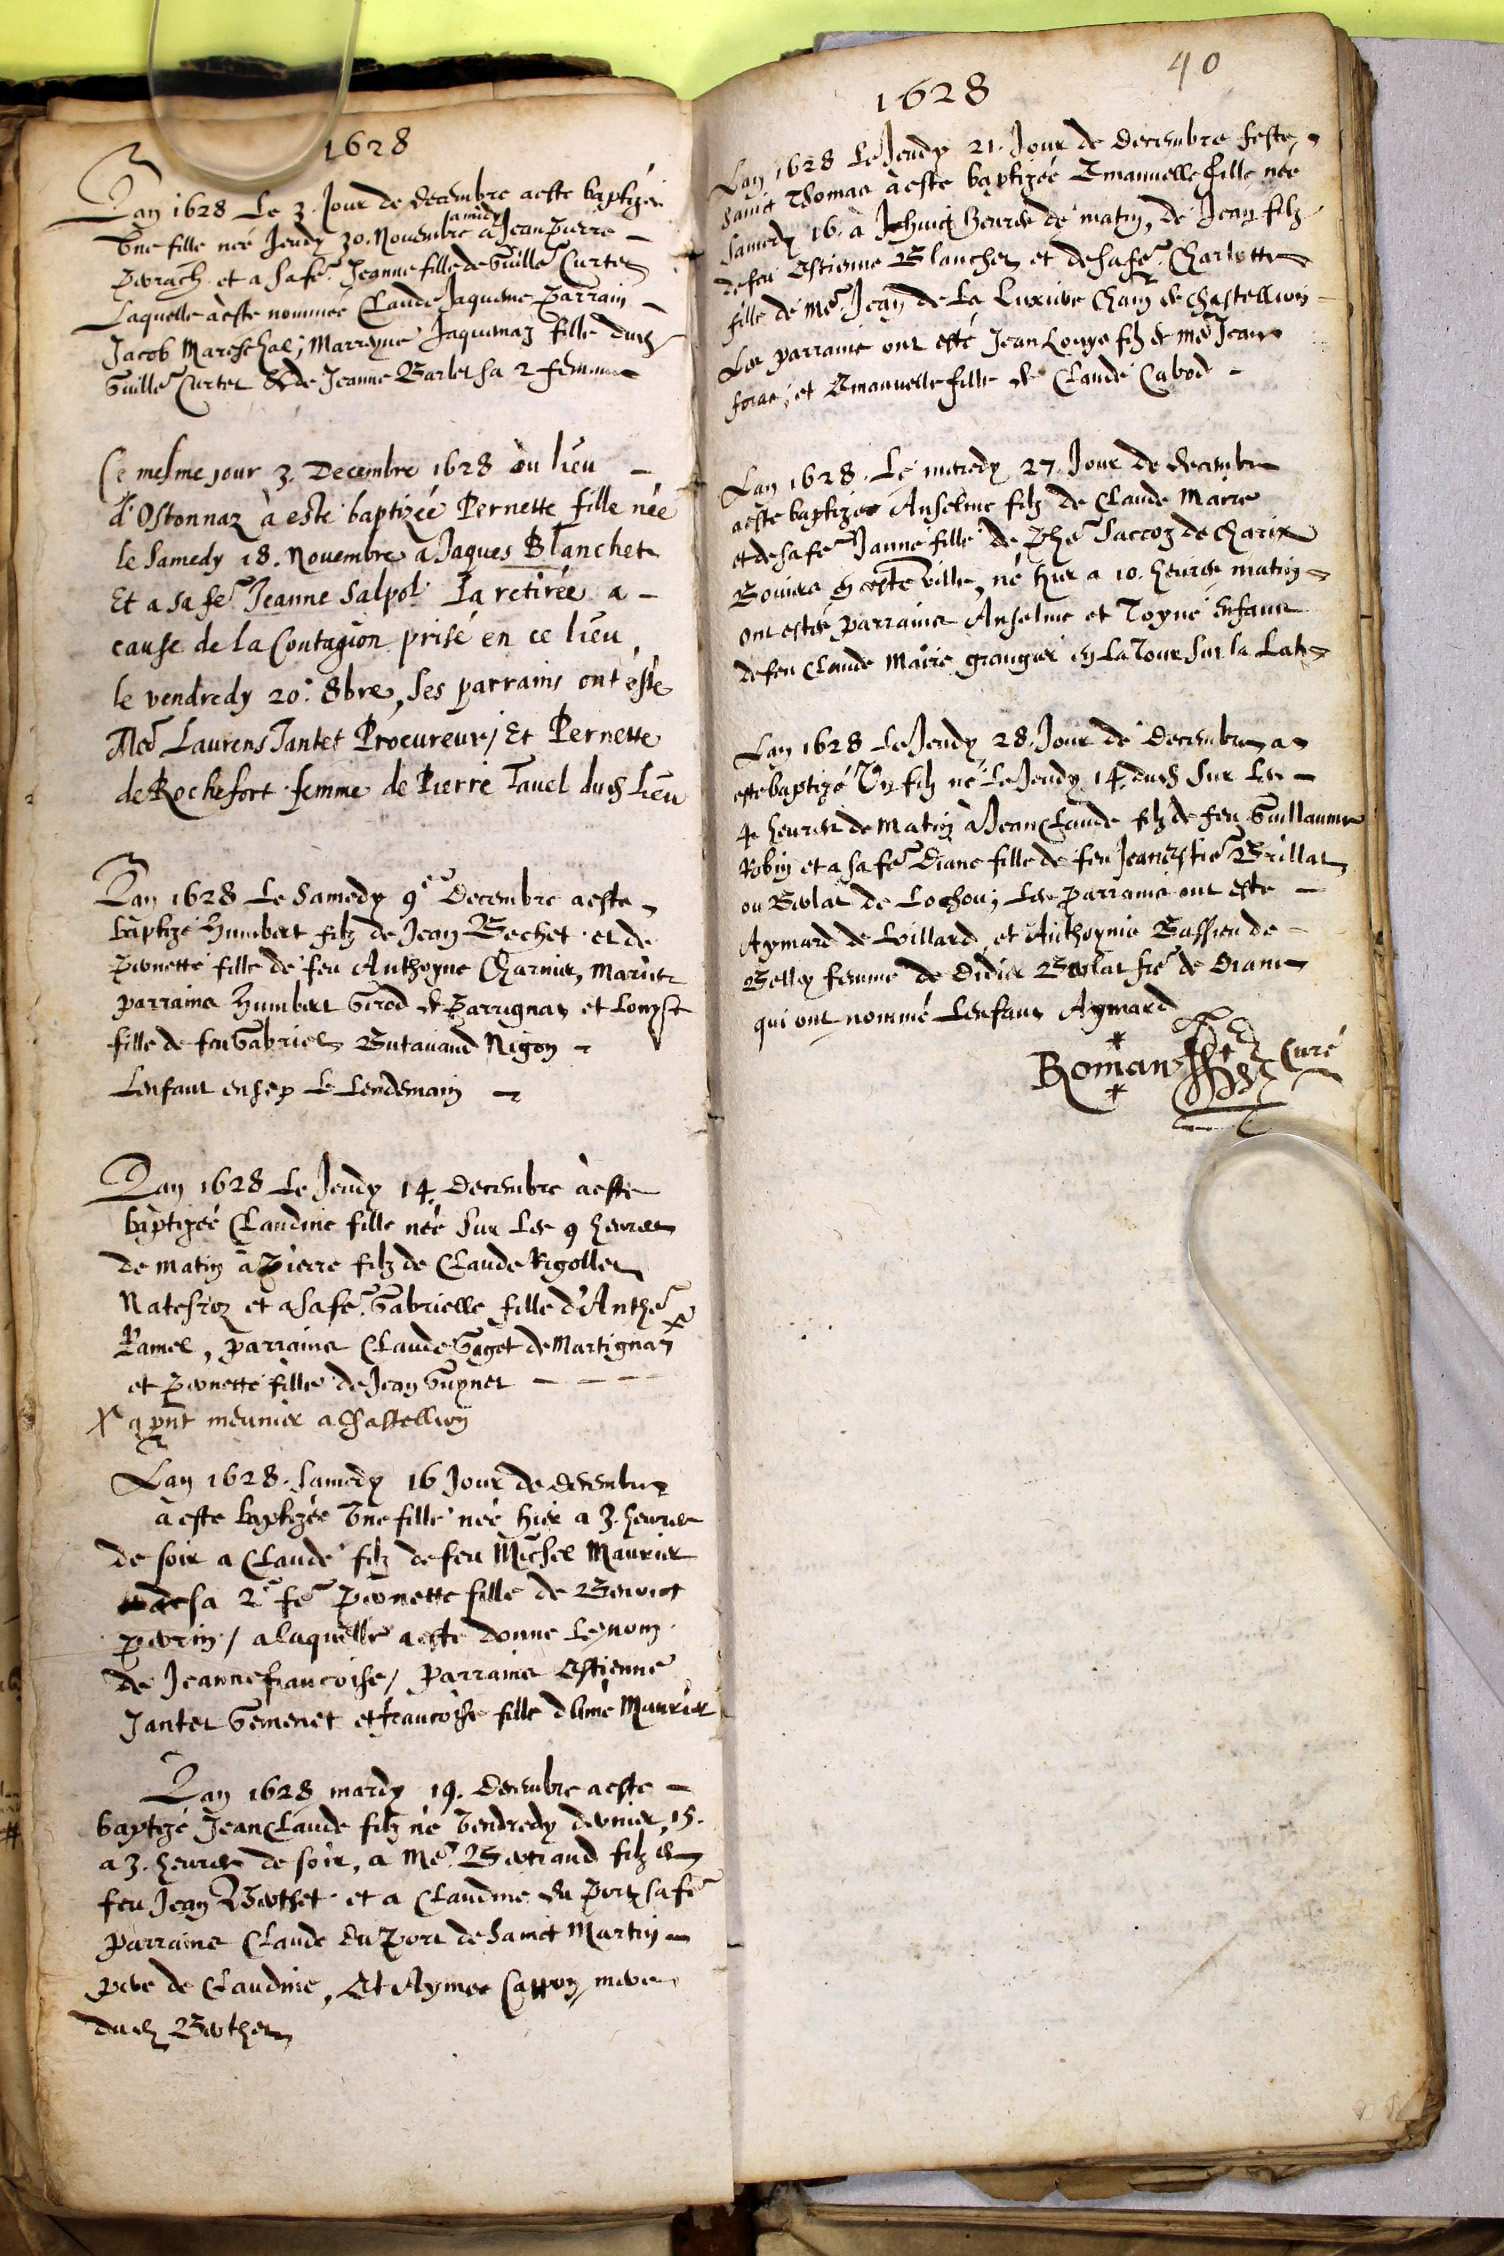 1628
Lan 1628 Le 3. Jour de decembre a este baptizeé
Vne fille neé Jeudy 30. Nouembre a Jean Pierre
samedy
et a sa fe. Jeanne fille de Guille. Curtet
Laquelle à este nommeé Claude Jaqueme Parrain
Jacob Mareschal; Marreyne Jaquemaz fille dud
Guille. Curtet & de Jeanne Barlet sa 2 femme
Ce mesme jour 3. Decembre 1628 au lieu
d'Ostonnaz à este baptizeé Pernette fille neé
le Samedy 18. Nouembre a Jaques Blanchet
Et a sa fe. Jeanne Salpol. La retireé a
cause de la Contagion prise en ce lieu
le vendredy 20. 8bre, Ses parrains ont este
Me Laurens Jantet Procureur / Et Pernette
de Rochefort femme de Pierre Tauel dud lieu
Lan 1628 Le Samedy 9e Decembre a este
baptizé Humbert filz de Jean Bechet et de
Peronette fille de feu Anthoyne Charnier,
parrains Humbert Girod de Parrignaz et Loyse
fille de feu Gabriel Butauand Nigon
Lenfant Le Lendemain
Lan 1628 Le Jeudy 14. Decembre à este
baptizeé Claudine fille neé Sur Les 9 heures
de matin à Pierre filz de Claude Rigollet
et a sa fe. Gabrielle fille d'Anthe.
Ramel, parrains Claude Gaget de Martignaz x
et Peronette fille de Jean Guynet
x a pnt meunier a Chastellion
Lan 1628. Samedy 16 Jour de decembre
à este baptizeé Vne fille neé hier a 3. heures
de soir a Claude filz de feu Michel Maurier
de sa 2e fe. Peronette fille de Benoict
Perrin / a laquelle a este donne Le nom
de Jeanne francoise / Parrains Estienne
Jantet Gemeriet et francoise fille Maurier
Lan 1628 mardy 19. Decembre a este
baptizé Jean Claude filz né Vendredy dernier, 15.
a 3. heures de soir, a Me. Bertrand filz de
feu Jean Berthet et a Claudine du Port sa fe.
Parrains Claude du Port de Sainct Martin
pere de Claudine, Et Aymee Cappon mere
dud Berthet
40
1628
Lan 1628 Le Jeudy 21. Jour de decembre feste
Sainct Thomas à este baptizeé Emanuelle fille neé
Samedy 16. à huict heures de matin, de Jean filz
de feu Estienne Blanchet et de sa fe. Charlotte
fille de Me. Jean de La Chan de Chastellion
Les parrains ont esté Jean Louys filz de Me Jean
foras; et Emanuelle fille de Claude Cabod
Lan 1628. Le mercredy 27. Jour de decembre
a este baptizeé Anselme filz de Claude Maire
et de sa fe. Janne fille de Saccoz de Charix
Bouiere en ceste ville, né hier a 10. heures matin
ont estés parrains Anselme et Toyne enfans
de feu Claude Maire grangier en La Tour Sur la Lab
Lan 1628 Le Jeudy 28. Jour de decembre a
este baptizé Vn filz né Le Jeudy 14. dud Sur Les
4. heures de matin à Jean Claude filz de feu Guillaume
Robin et a sa fe. Diane fille de feu Jean Brillat
ou Berlat de Lochou; Les parrains ont este
Aymard de Loillard et Anthoynie Bassieu de
Belley femme de Didier Berlat fre. de Diane
qui ont nommé Lenfant Aymard
Roman Curé